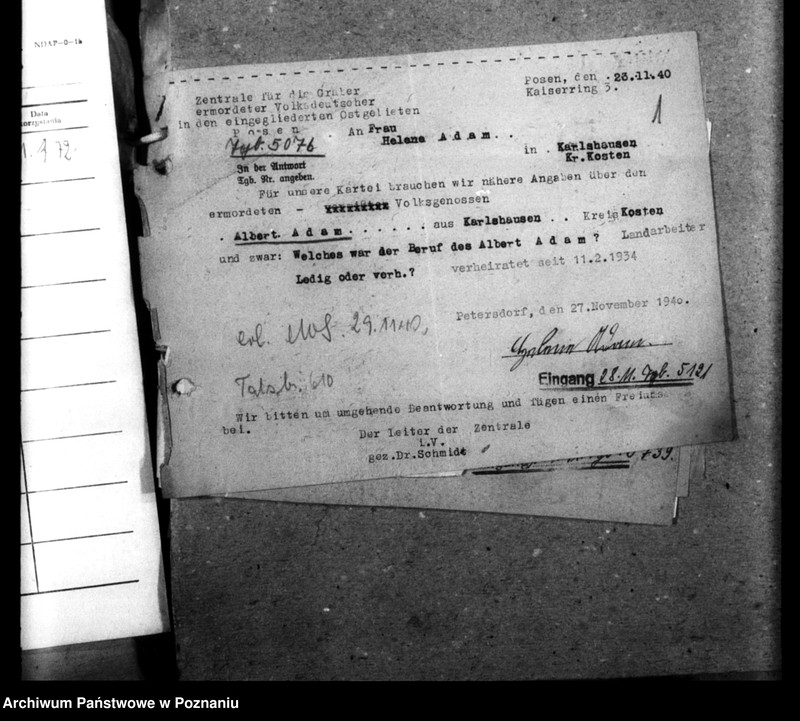 NDAP-0-14
Data
Zentrale für die Gräber
ermordeter Volksdeutscher
in den eingegliederten Ostgebieten
Posen
Tgb. 5076
In der Antwort
Tgb. Nr. angeben.
Posen, den .23.11.40
Kaiserring 3.
1
An Frau
Helene Adam..
in. Karlshausen
Kr. Kosten
Für unsere Kartei brauchen wir nähere Angaben über den
ermordeten - Volksgenossen
. Albert. Adam...... aus Karlshausen .. Kreis Kosten
und zwar: Welches war der Beruf des Albert Adam? Landarbeiter
Ledig oder verh.? verheiratet seit 11.2.1934
Petersdorf, den 27.November 1940.
Helene Adam.
29.11.40.
Eingang 28.11. Tgb. 5121
Wir bitten um umgehende Beantwortung und fügen einen
bei.
Der Leiter der Zentrale
i.V.
gez.Dr.Schmidt
Archiwum Państwowe w Poznaniu